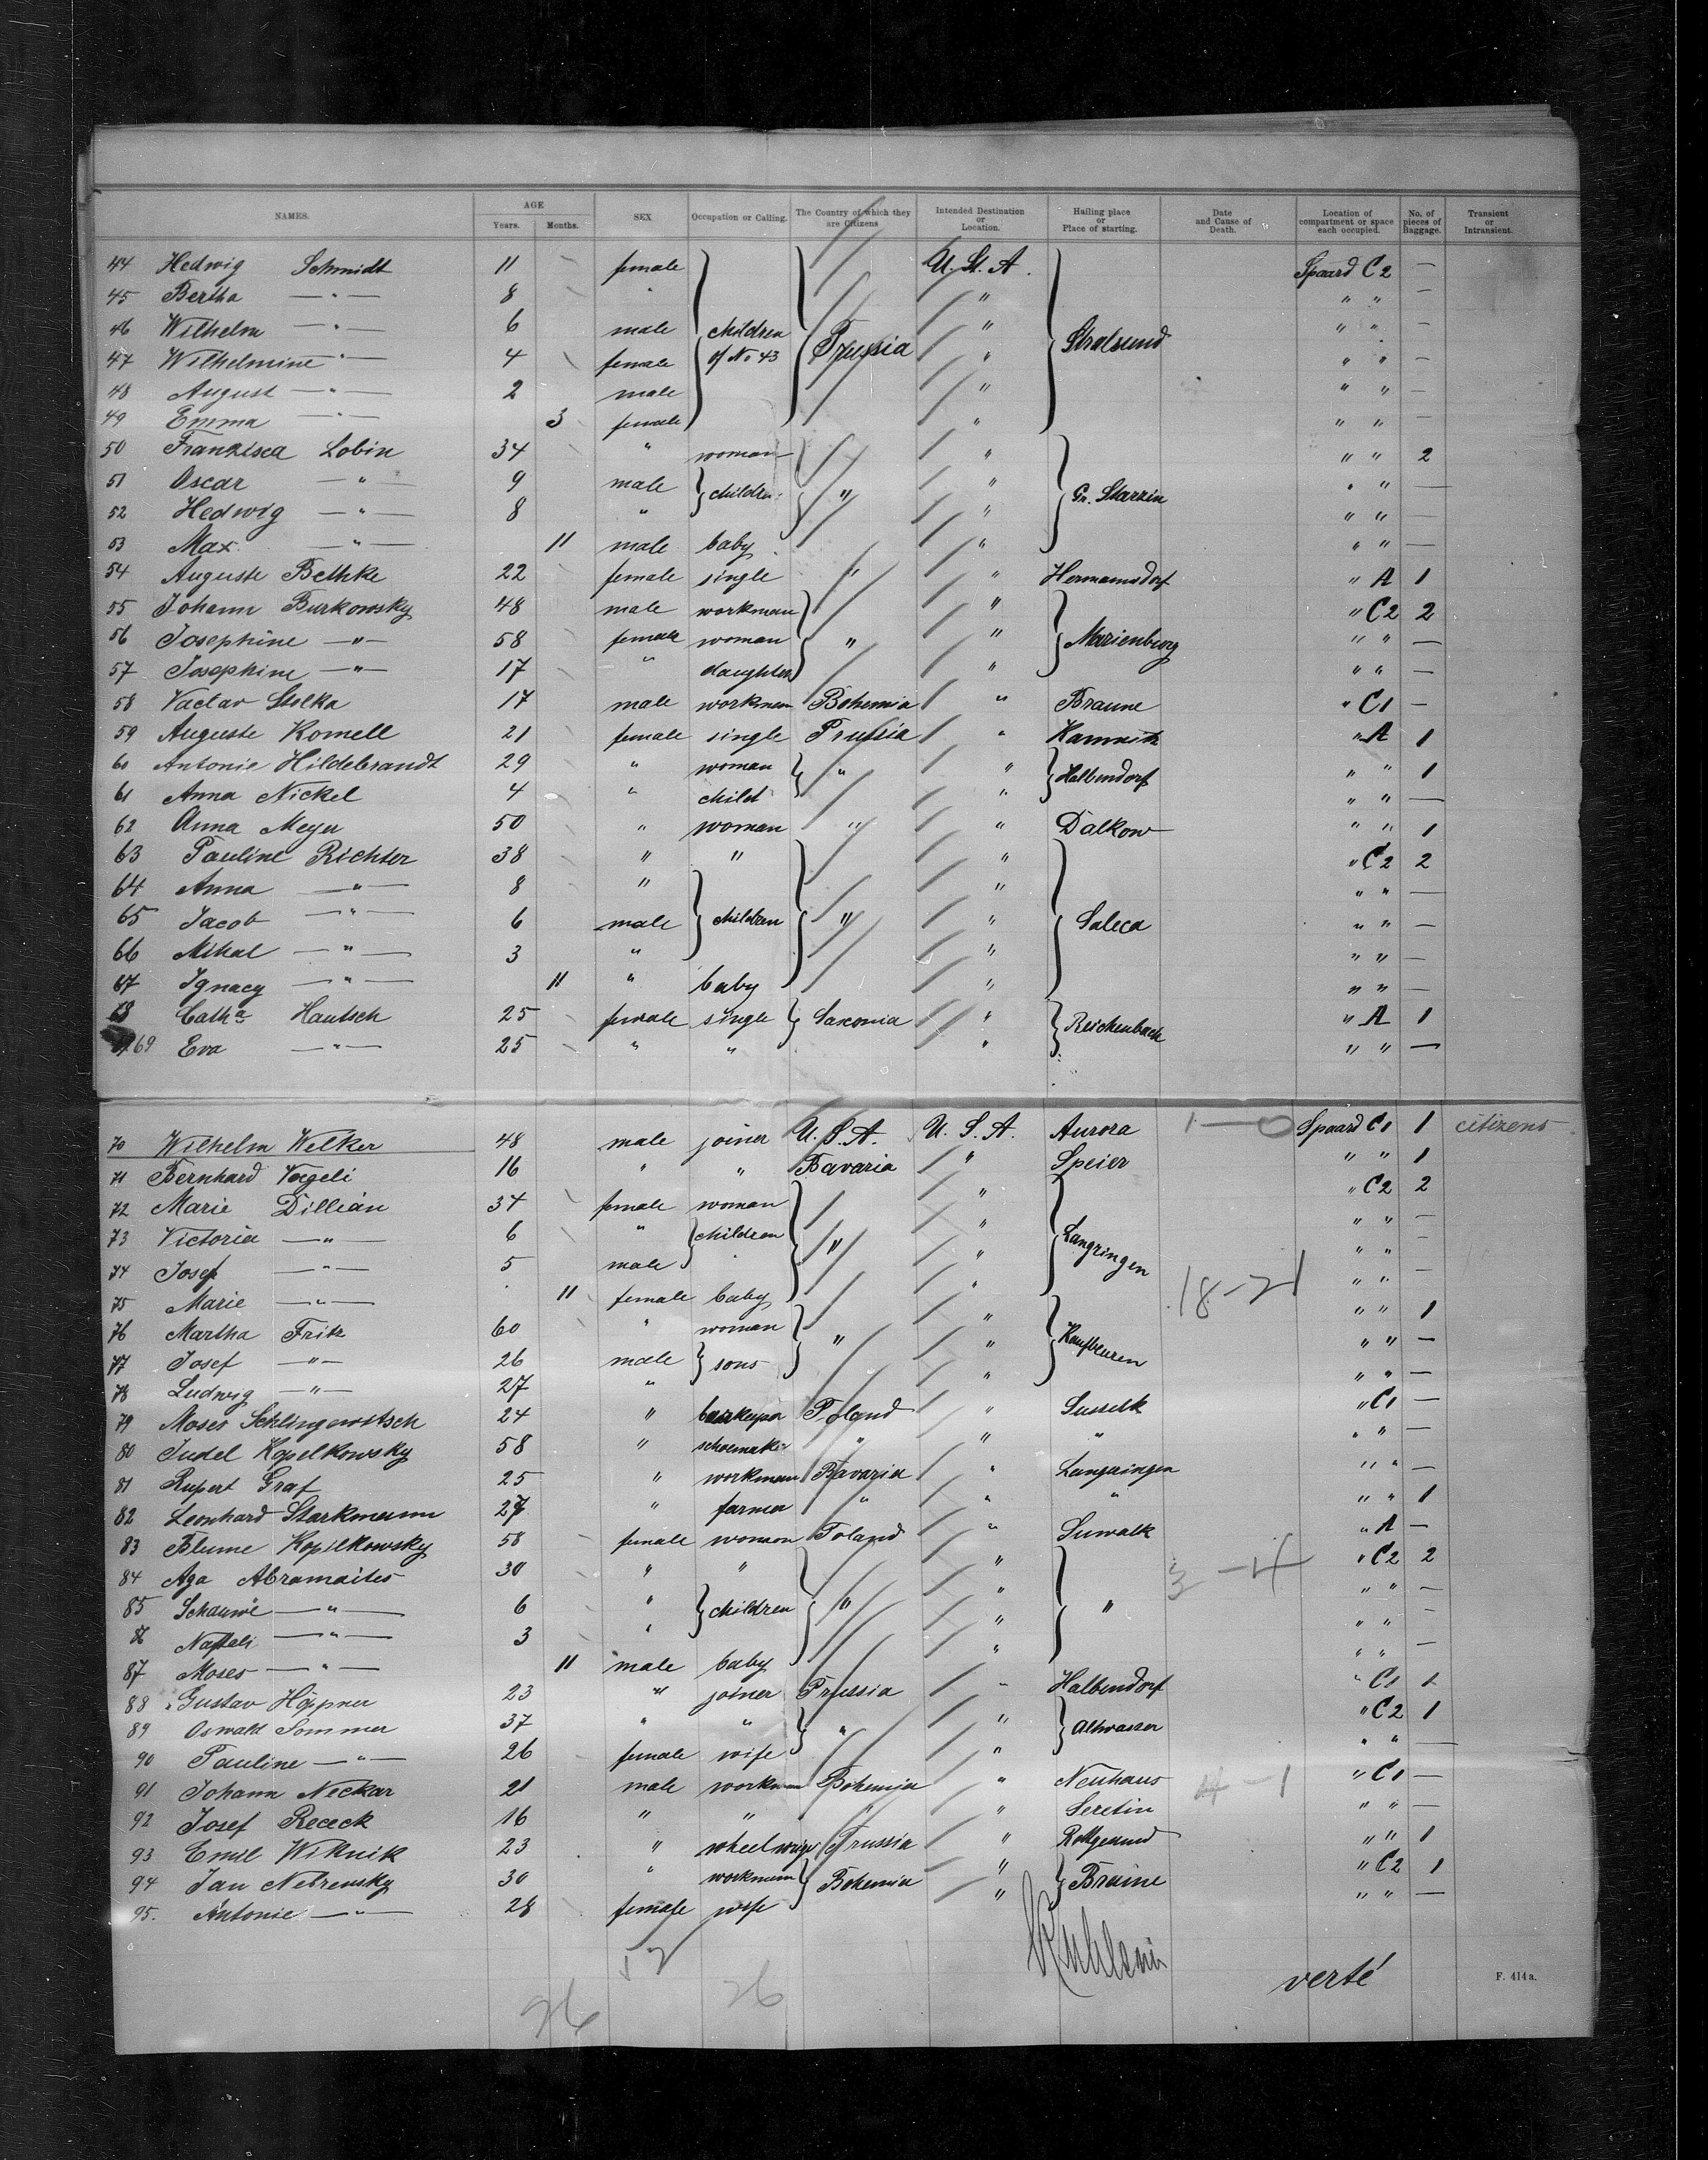 NAMES. AGE Years. Months. SEX Occupation or Calling. The Country of which they are Citizens Intended Destination or Location. Hailing place or Place of starting. Date and Cause of Death. Location of compartment or space each occupied. No. of pieces of Baggage. Transient or Intransient.
44 Hedwig Schmidt 11 female children of No 43 Prussia U. St. A. Stralsund Spaard C2 —
45 Bertha —"— 8 " " " " —
46 Wilhelm —"— 6 male " " " —
47 Wilhelmine " 4 female " " " —
48 August —"— 2 male " " " —
49 Emma —"— 3 female " " " —
50 Franzisca Lobin 34 " woman " " Gr. Starzin " " 2
51 Oscar —"— 9 male children " " " —
52 Hedwig —"— 8 " " " " —
53 Max —"— 11 male baby " " " —
54 Auguste Bethke 22 female single " " Hermansdorf " A 1
55 Johann Burkowsky 48 male workman " " Marienburg " C2 2
56 Josephine —"— 58 female woman " " " —
57 Josephine —"— 17 " daughter " " " —
58 Vaclav Stolka 17 male workman Bohemia " Braune " C1 —
59 Auguste Komell 21 female single Prussia " Kamnitz " A 1
60 Antonie Hildebrandt 29 " woman " " Halbendorf " " 1
61 Anna Nickel 4 " child " " " —
62 Anna Meyer 50 " woman " " Dalkow " " 1
63 Pauline Richter 38 " " " " Saleca " C2 2
64 Anna —"— 8 " children " " " —
65 Jacob —"— 6 male " " " —
66 Mihal —"— 3 " " " " —
67 Ignacy —"— 11 " baby " " " —
68 Catha Hautsch 25 female single Saxonia " Reichenbach " A 1
69 Eva —"— 25 " " " " " —
70 Wilhelm Welker 48 male joiner U. S. A. U. S. A. Aurora 1 — 0 Spaard C1 1 citizens
71 Bernhard Vogeli 16 " " Bavaria " Speier " " 1
72 Marie Dillian 34 female woman " " Langringen " C2 2
73 Victoria —"— 6 " children " " " —
74 Josef —"— 5 male " " " —
75 Marie —"— 11 female baby " 18-21 " " —
76 Martha Fritz 60 " woman " " Kaufbeuren " " 1
77 Josef —"— 26 male sons " " " —
78 Ludwig —"— 27 " " " " —
79 Moses Schlingewitsch 24 " barkeeper Poland " " C1 —
80 Judel Kopelkowsky 58 " schoemaker " " " " " —
81 Rupert Graf 25 " workman Bavaria " Langringen " " —
82 Leonhard Starkmann 27 " farmer " " " " " 1
83 Blume Kopilkowsky 58 female woman Poland " Suwalk " A —
84 Aga Abramaites 30 " " " " " 3 — 4 " C2 2
85 Schauwe —"— 6 " children " " " —
86 Naftali —"— 3 " " " " —
87 Moses —"— 11 male baby " " " —
88 Gustav Höppner 23 " joiner Prussia " Halbendorf " C1 1
89 Oswald Sommer 37 " " " " Altwasser " C2 1
90 Pauline —"— 26 female wife " " " —
91 Johann Neckar 21 male workman Bohemia " Neuhaus 4 — 1 " C1 —
92 Josef Receck 16 " " " " Seretin " " —
93 Emil Wiknik 23 " Prussia " " " 1
94 Jan Nebrensky 30 " workman Bohemia " Braune " C2 1
95. Antonie —"— 28 female wife " " " —
52
26 26
verté
F. 414a.